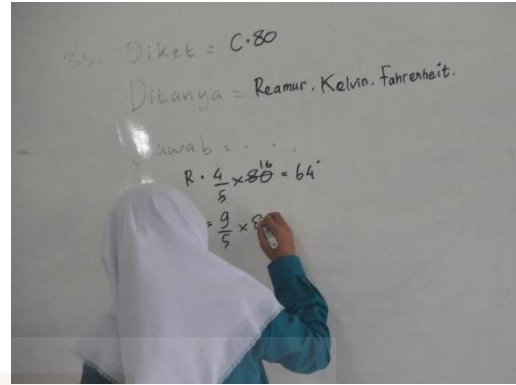 33. Diket = C. 80
Ditanya = Reamur, Kelvin, Fahrenheit.
Jawab = . . .
R = 4/5 × 80 16 = 64°
= 9/5 × 8